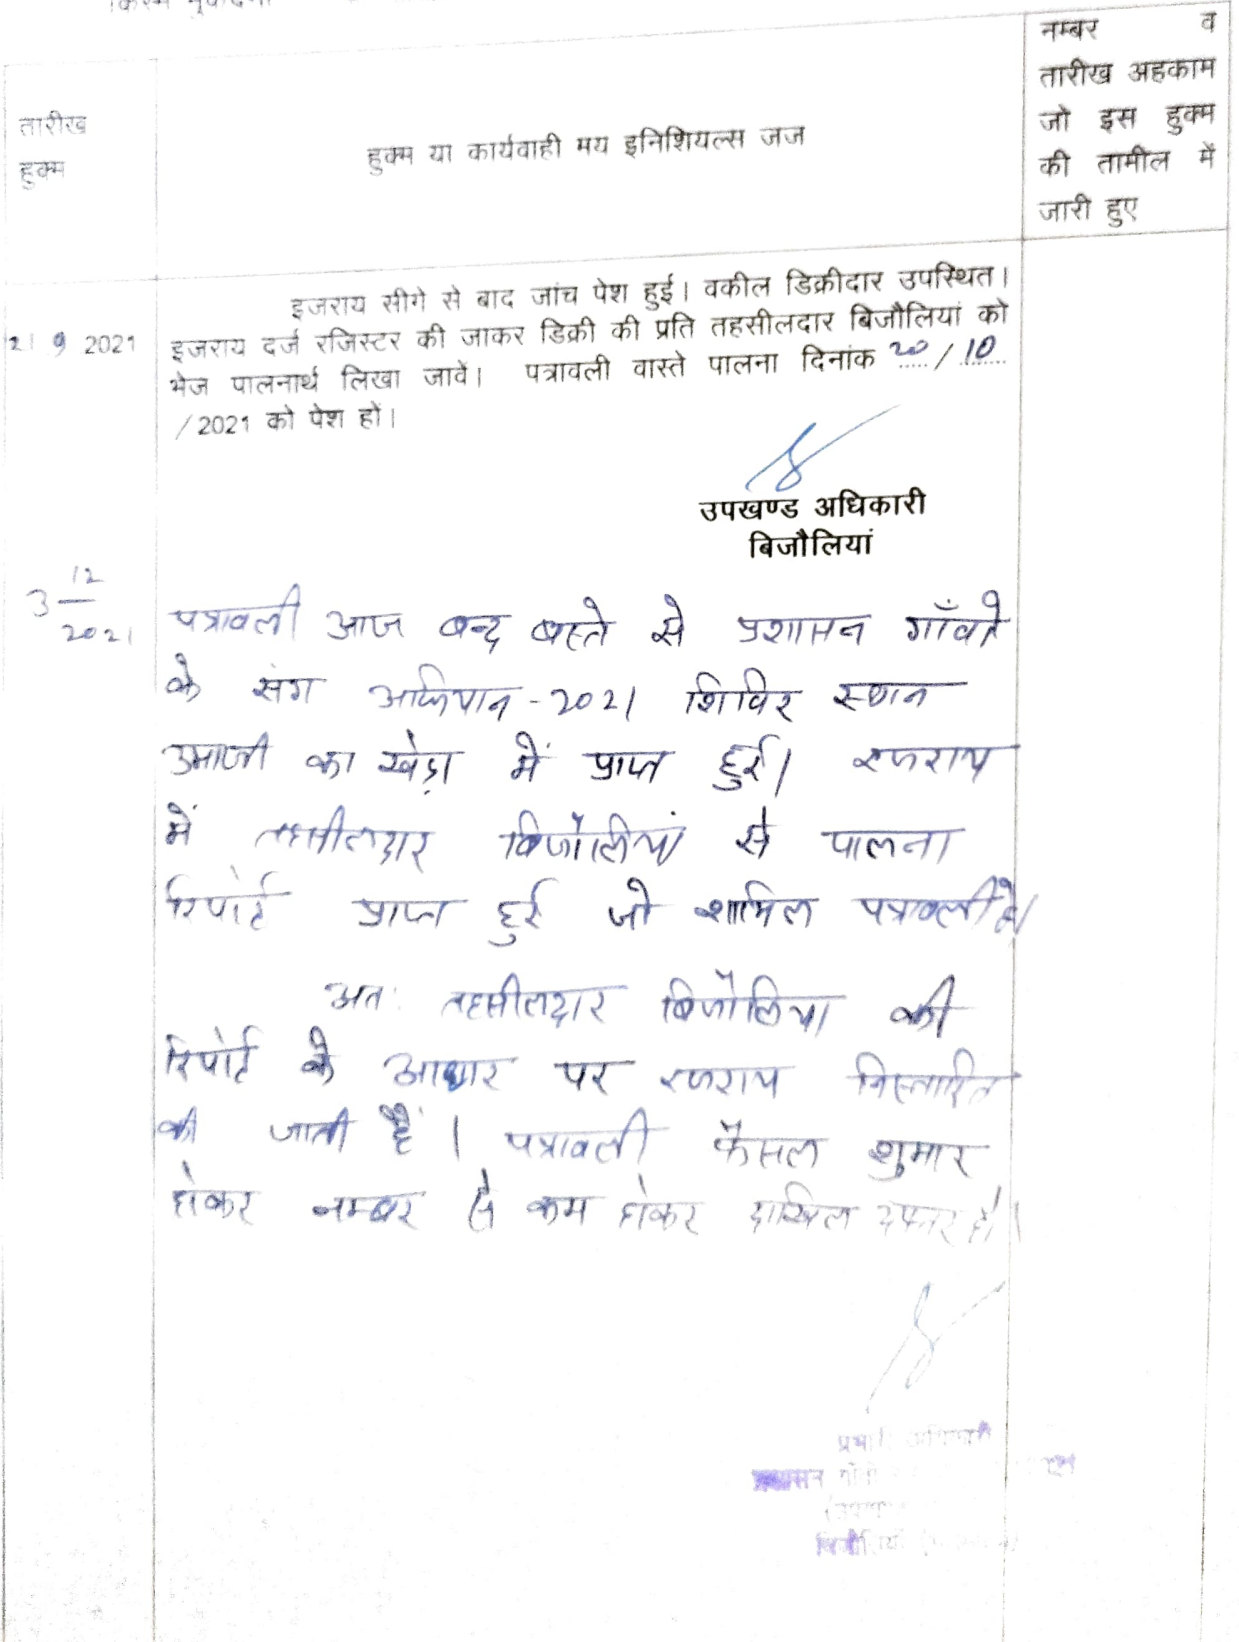 किस्म मुकदमा
तारीख
हुक्म
हुक्म या कार्यवाही मय इनिशियल्स जज
नम्बर व
तारीख अहकाम
जो इस हुक्म
की तामील में
जारी हुए
21 9 2021
इजराय सीगे से बाद जांच पेश हुई। वकील डिक्रीदार उपस्थित।
इजराय दर्ज रजिस्टर की जाकर डिक्री की प्रति तहसीलदार बिजौलियां को
भेज पालनार्थ लिखा जावें। पत्रावली वास्ते पालना दिनांक 20/10
/2021 को पेश हों।
उपखण्ड अधिकारी
बिजौलियां
3 12
2021
पत्रावली आज बन्द बस्ते से प्रशासन गाँवो
के संग अभियान-2021 शिविर स्थान
उमाजी का खेड़ा में प्राप्त हुई। इजराय
में तहसीलदार बिजौलियां से पालना
रिपोर्ट प्राप्त हुई जो शामिल पत्रावली है।
अतः तहसीलदार बिजौलिया की
रिपोर्ट के आधार पर इजराय निस्तारित
की जाती है। पत्रावली फैसल शुमार
होकर नम्बर से कम होकर दाखिल दफ्तर हो।